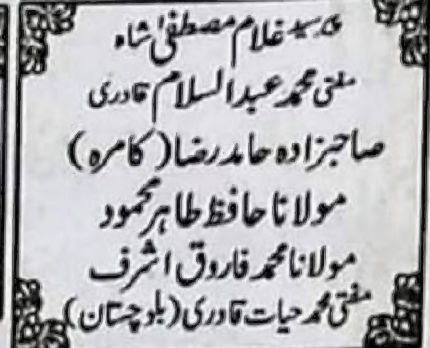 پیر سید غلام مصطفیٰ شاہ
مفتی محمد عبدالسلام قادری
صاحبزادہ حامد رضا (کامرہ)
مولانا حافظ طاہر محمود
مولانا محمد فاروق اشرف
مفتی محمد حیات قادری (بلوچستان)